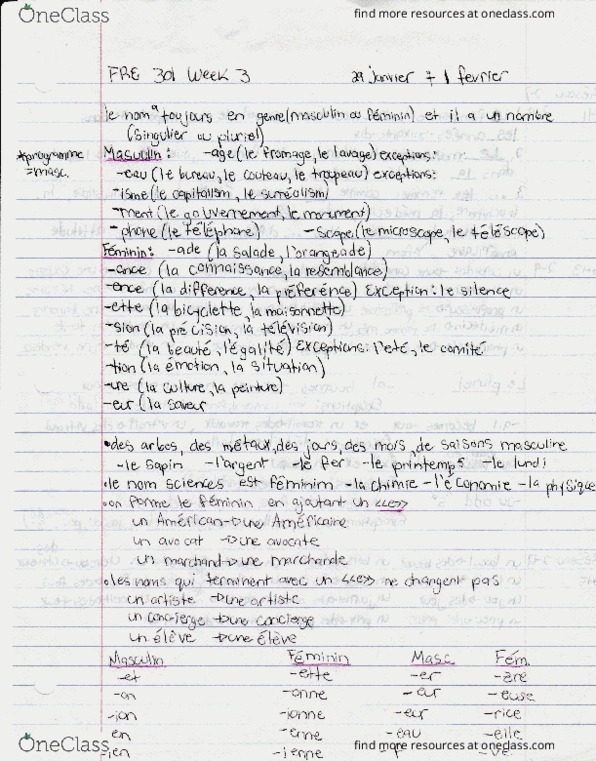 OneClass find more resources at oneclass.com
FRE 301 Week 3 29 janvier + 1 fevrier
le nom a toujours en genre (masculin ou féminin) et il a un nombre
(singulier ou pluriel)
*programme = masc.
Masculin: -age (le fromage, le lavage) exceptions:
-eau (le bureau, le couteau, le troupeau) exceptions:
-isme (le capitalism, le suréalism)
-ment (le gouvernement, le monument)
-phone (le téléphone) -scope (le microscope, le téléscope)
Féminin: -ade (la salade, l'orangeade)
-ance (la connaissance, la resemblance)
-ence (la difference, la préférence) Exception: le silence
-ette (la bicyclette, la maisonnette)
-sion (la précision, la télévision)
-té (la beauté, l'égalité) Exceptions: l'eté, le comité
-tion (la émotion, la situation)
-ure (la culture, la peinture)
-eur (la saveur
•des arbes, des métaux, des jours, des mois, de saisons masculine
-le sapin -l'argent -le fer -le printemps -le lundi
•le nom sciences est féminim -la chimie -l'économie -la physique
•on forme le féminin en ajoutant un <<e>>
un Américan→une Américaine
un avocat →une avocate
un marchand→une marchande
•les noms qui terminent avec un <<e>> ne changent pas
un artiste →une artiste
un concierge →une concierge
un élève →une élève
Masculin Féminin Masc. Fém.
-et -ette -er -ère
-on -onne -eur -euse
-ion -ionne -eur -rice
en -enne -eau -elle
-ien -ienne -ve
OneClass find more resources at oneclass.com